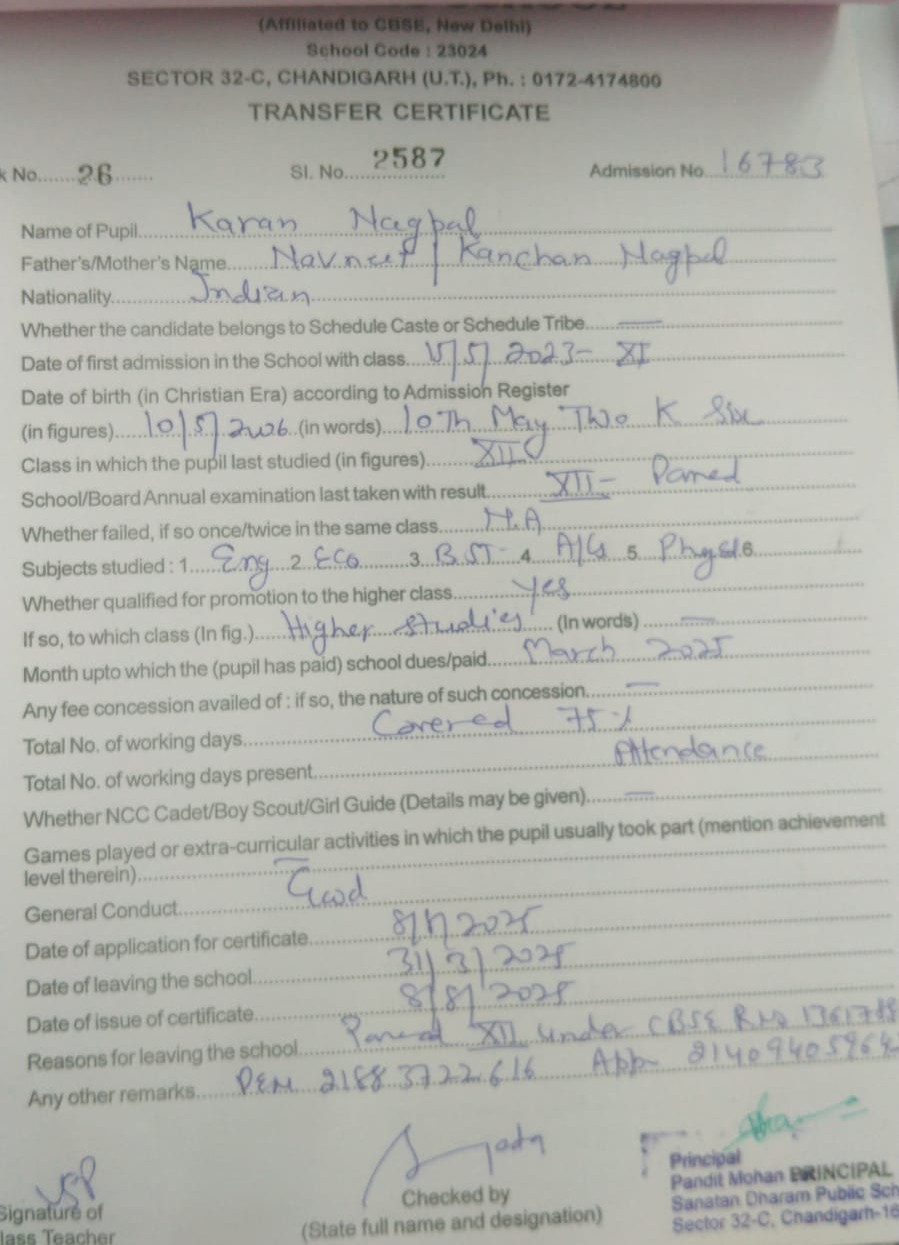 (Affiliated to CBSE, New Delhi)
School Code : 23024
SECTOR 32-C, CHANDIGARH (U.T.), Ph. : 0172-4174800
TRANSFER CERTIFICATE
k No. 26 Sl. No. 2587 Admission No. 16783
Name of Pupil Karan Nagpal
Father's/Mother's Name Navneet / Kanchan Nagpal
Nationality Indian
Whether the candidate belongs to Schedule Caste or Schedule Tribe —
Date of first admission in the School with class 2023- XI
Date of birth (in Christian Era) according to Admission Register
(in figures) 10/5/2006 (in words) 10Th May Two K Six
Class in which the pupil last studied (in figures) XII
School/Board Annual examination last taken with result XII- Passed
Whether failed, if so once/twice in the same class N.A
Subjects studied : 1. Eng 2. Eco 3. B.ST 4. A/Cs 5. Phy 6.
Whether qualified for promotion to the higher class Yes
If so, to which class (In fig.) Higher Studies (In words) —
Month upto which the (pupil has paid) school dues/paid March 2025
Any fee concession availed of : if so, the nature of such concession —
Total No. of working days Covered 75%
Total No. of working days present Attendance
Whether NCC Cadet/Boy Scout/Girl Guide (Details may be given) —
Games played or extra-curricular activities in which the pupil usually took part (mention achievement
level therein) —
General Conduct Good
Date of application for certificate 2025
Date of leaving the school 31/3/2025
Date of issue of certificate 8/8/2025
Reasons for leaving the school Passed XII under CBSE
Any other remarks PEN 21883722616
Signature of
lass Teacher
Checked by
(State full name and designation)
Principal
Pandit Mohan PRINCIPAL
Sanatan Dharam Public Sch
Sector 32-C, Chandigarh-16